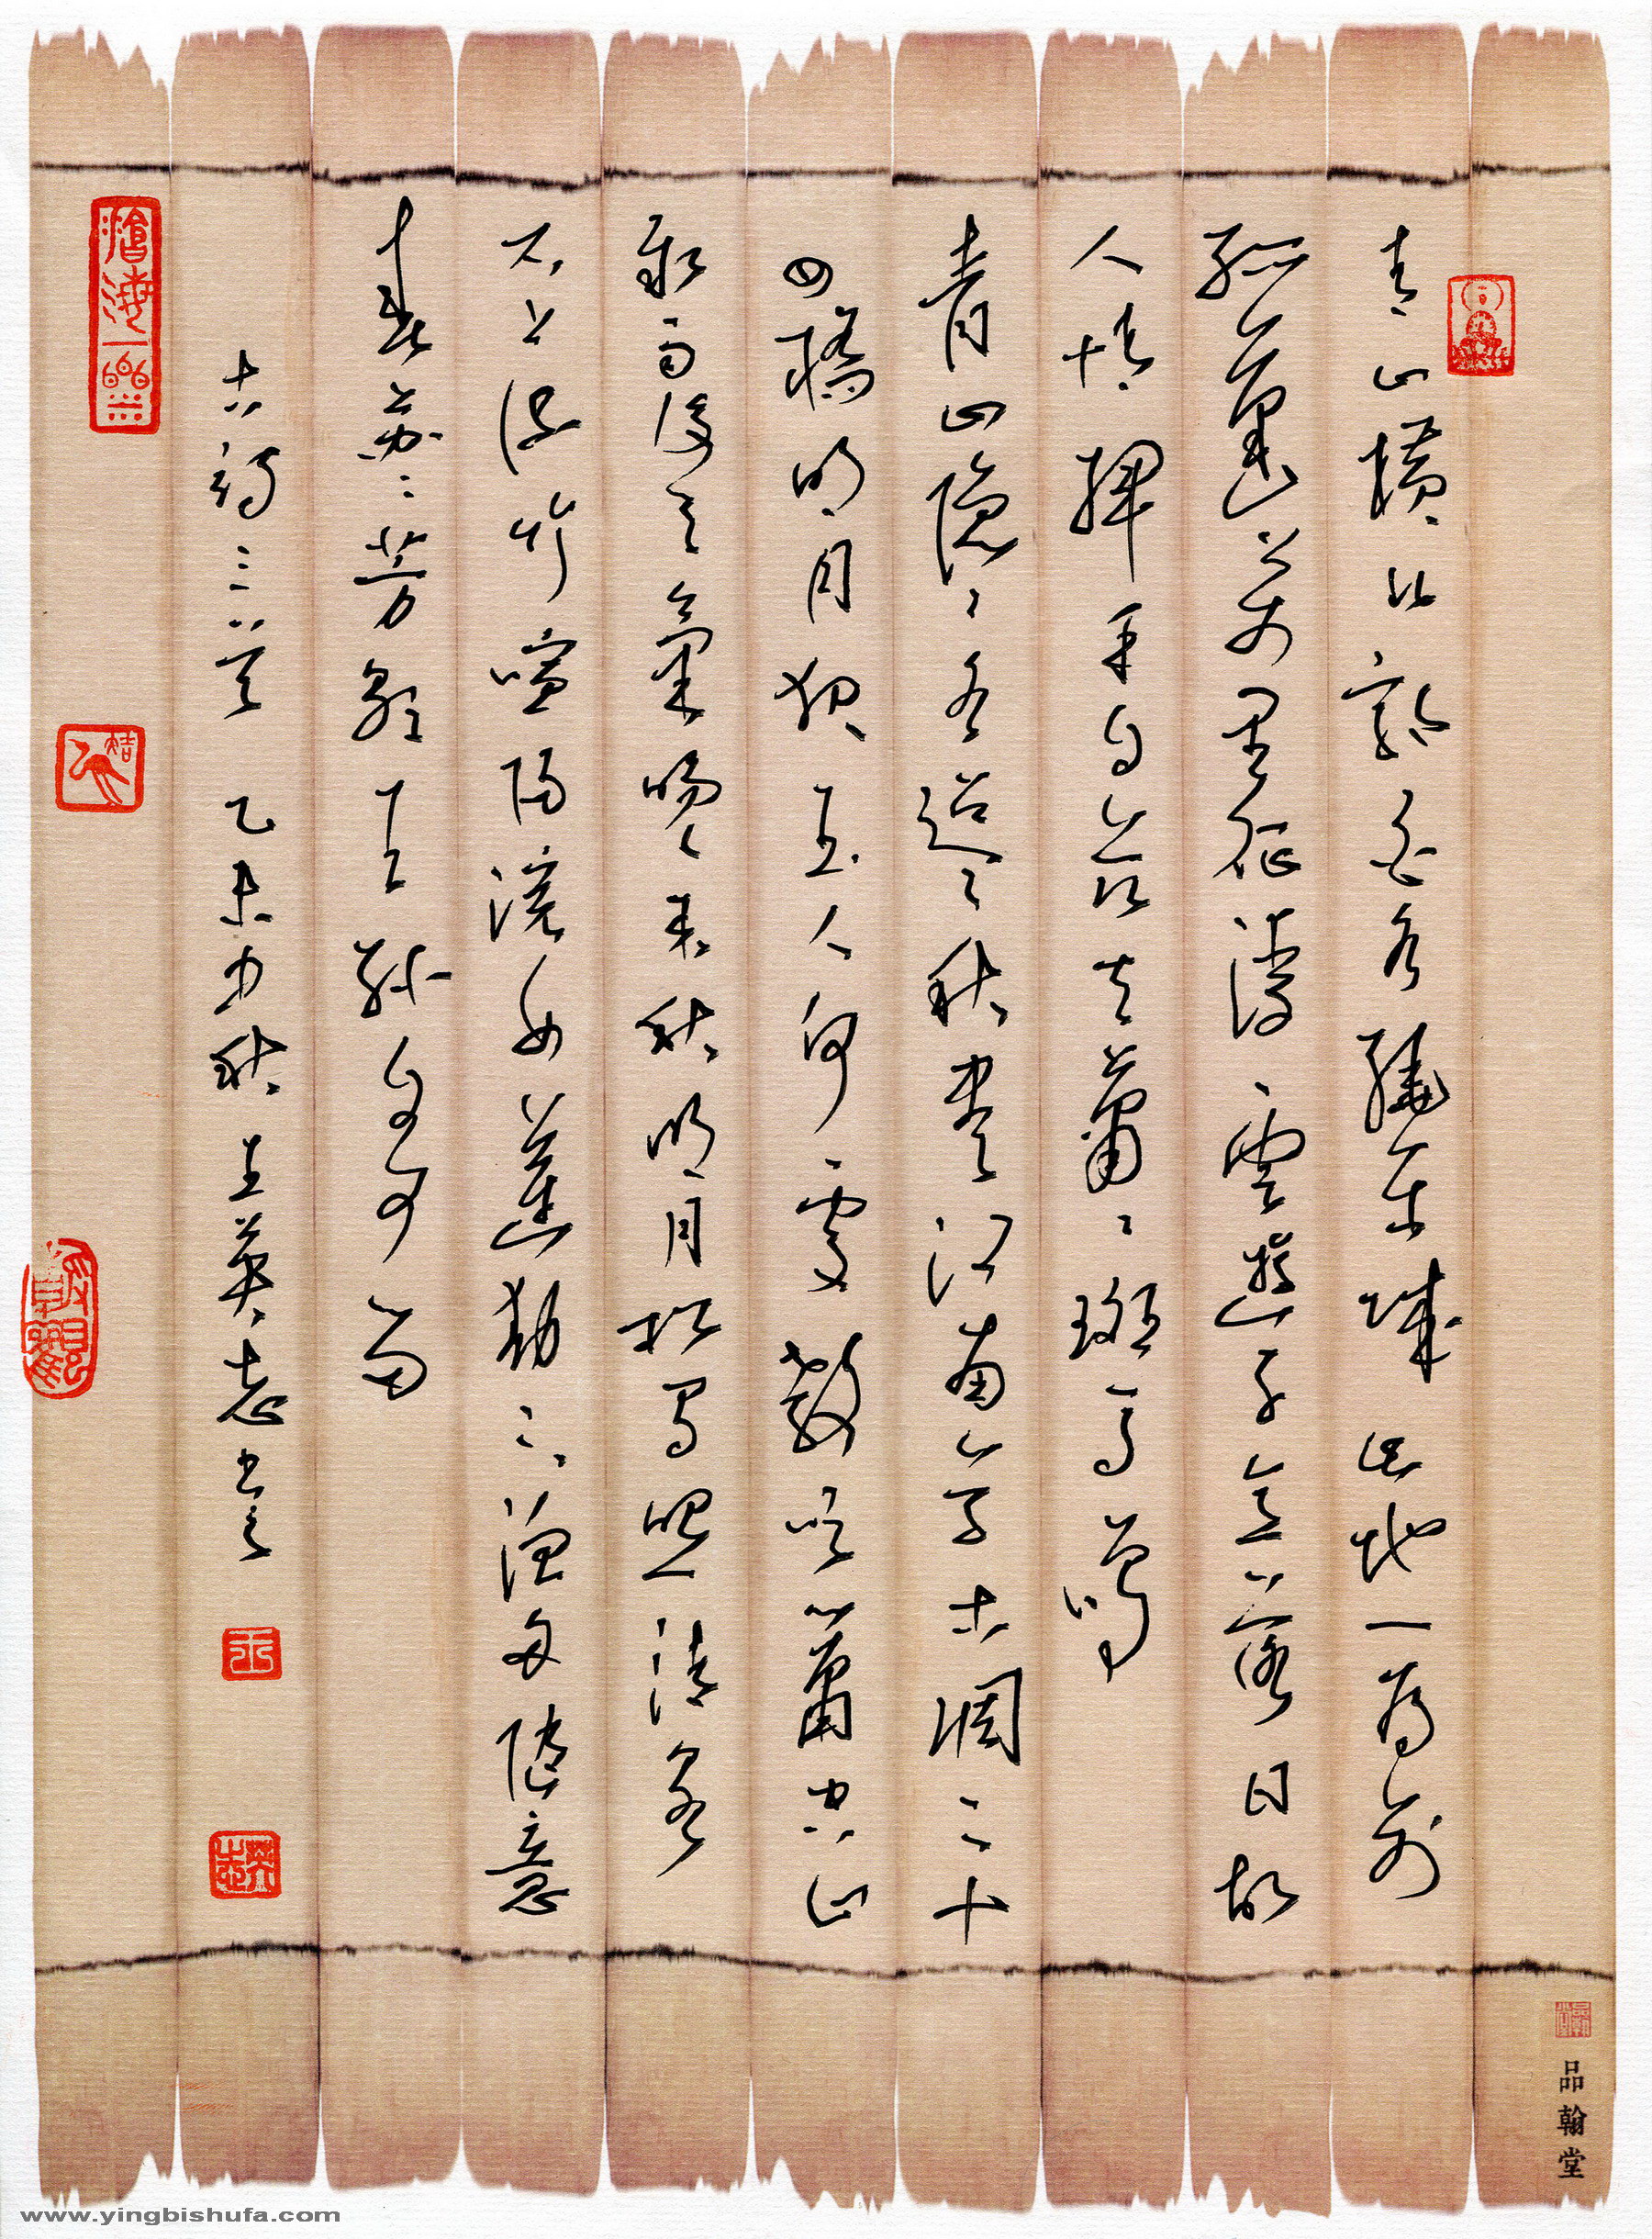 青山横北郭白水绕东城此地一为别
孤蓬万里征浮云游子意落日故
人情挥手自兹去萧萧班马鸣
青山隐隐水迢迢秋尽江南草木凋二十
四桥明月夜玉人何处教吹箫空山
新雨后天气晚来秋明月松间照清泉
石上流竹喧归浣女莲动下渔舟随意
春芳歇王孙自可留
古诗三首 乙未中秋 王英志书
品翰堂
www.yingbishufa.com